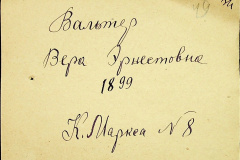 Вальтер
Вера Эрнестовна
1899
К. Маркса № 8